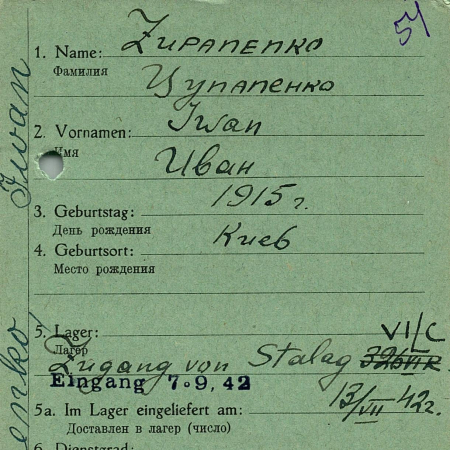 54
1. Name: Zupanenko
Фамилия Цупапенко
2. Vornamen: Iwan
Имя Иван
3. Geburtstag: 1915 г.
День рождения
4. Geburtsort: Киев
Место рождения
5. Lager: VI/C
Лагер
Zugang von Stalag 326
Eingang 7.9.42
5a. Im Lager eingeliefert am: 13/VII 42г.
Доставлен в лагер (число)
6. Dienstgrad:
enko Iwan